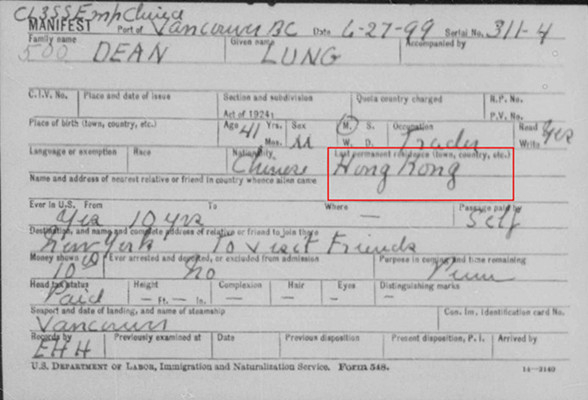 CL 3SS Emp China
MANIFEST Port of Vancouver BC Date 6-27-99 Serial No. 311-4
Family name Given name Accompanied by
500 DEAN LUNG
C.I.V. No. Place and date of issue Section and subdivision Quota country charged R.P. No.
Act of 1924: P.V. No.
Place of birth (town, country, etc.) Age 41 Yrs. Sex M. S. Occupation Read Yes
Mos. M W. D. Trader Write
Language or exemption Race Nationality, Last permanent residence (town, country, etc.)
Chinese Hong Kong
Name and address of nearest relative or friend in country whence alien came
Ever in U.S. From To Where Passage paid by
Yes 10 yrs — Self
Destination, and name and complete address of relative or friend to join there
New York To visit Friends
Money shown Ever arrested and deported, or excluded from admission Purpose in coming and time remaining
10 00 no
Head tax status Height Complexion Hair Eyes Distinguishing marks
Paid — Ft. — In. — — — —
Seaport and date of landing, and name of steamship Can. Im. Identification card No.
Vancouver
Records by Previously examined at Date Previous disposition Present disposition, P. I. Arrived by
EHH
U.S. DEPARTMENT OF LABOR, Immigration and Naturalization Service. Form 548. 14—2140